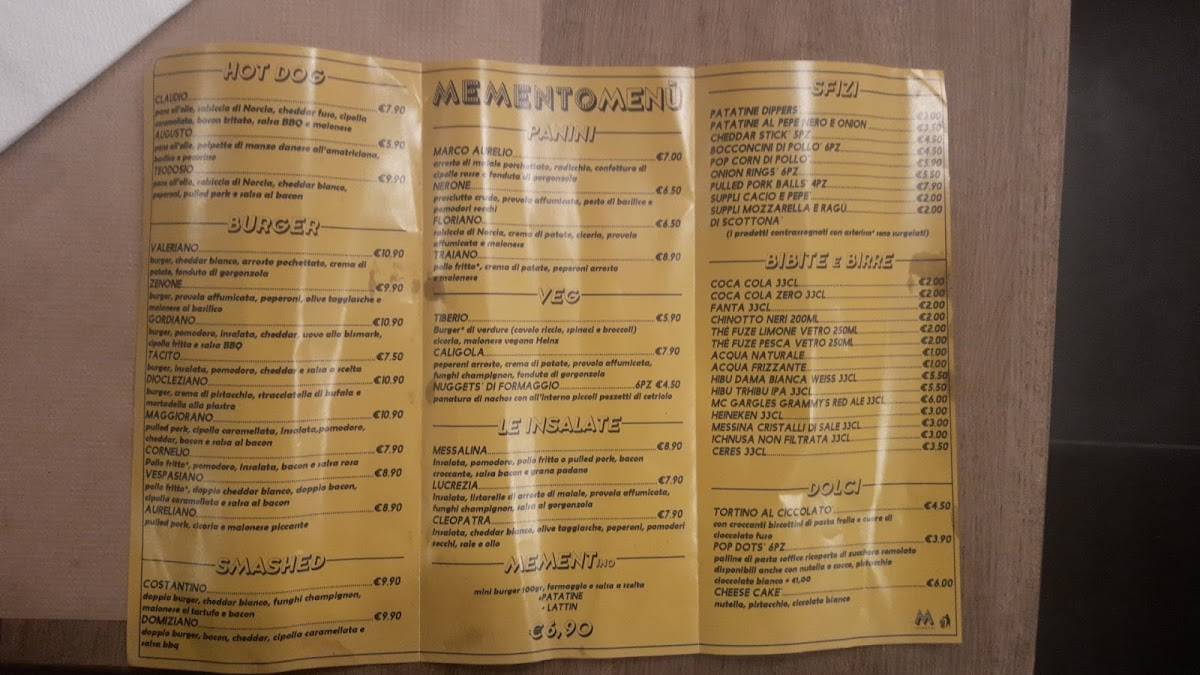 HOT DOG
CLAUDIO €7.90
pane all'olio, salsiccia di Norcia, cheddar fuso, cipolla
caramellata, bacon tritato, salsa BBQ e maionese
AUGUSTO €5.90
pane all'olio, polpette di manzo danese all'amatriciana,
basilico e pecorino
TEODOSIO €9.90
pane all'olio, salsiccia di Norcia, cheddar bianco,
peperoni, pulled pork e salsa al bacon
BURGER
VALERIANO €10.90
burger, cheddar bianco, arrosto pochettato, crema di
patate, fonduta di gorgonzola
ZENONE €9.90
burger, provola affumicata, peperoni, olive taggiasche e
maionese al basilico
GORDIANO €10.90
burger, pomodoro, insalata, cheddar, uovo alla bismark,
cipolla fritta e salsa BBQ
TACITO €7.50
burger, insalata, pomodoro, cheddar e salsa a scelta
DIOCLEZIANO €10.90
burger, crema di pistacchio, stracciatella di bufala e
mortadella alla piastra
MAGGIORANO €10.90
pulled pork, cipolla caramellata, insalata, pomodoro,
cheddar, bacon e salsa al bacon
CORNELIO €7.90
Pollo fritto*, pomodoro, insalata, bacon e salsa rosa
VESPASIANO €8.90
pollo fritto*, doppio cheddar bianco, doppio bacon,
cipolla caramellata e salsa al bacon
AURELIANO €8.90
pulled pork, cicoria e maionese piccante
SMASHED
COSTANTINO €9.90
doppio burger, cheddar bianco, funghi champignon,
maionese al tartufo e bacon
DOMIZIANO €9.90
doppio burger, bacon, cheddar, cipolla caramellata e
salsa bbq
MEMENTOMENÙ
PANINI
MARCO AURELIO €7.00
arrosto di maiale porchettato, radicchio, confettura di
cipolle rosse e fonduta di gorgonzola
NERONE €6.50
prosciutto crudo, provola affumicata, pesto di basilico e
pomodori secchi
FLORIANO €6.50
salsiccia di Norcia, crema di patate, cicoria, provola
affumicata e maionese
TRAIANO €8.90
pollo fritto*, crema di patate, peperoni arrosto
e maionese
VEG
TIBERIO €5.90
Burger* di verdure (cavolo riccio, spinaci e broccoli)
cicoria, maionese vegana Heinz
CALIGOLA €7.90
peperoni arrosto, crema di patate, provola affumicata,
funghi champignon, fonduta di gorgonzola
NUGGETS* DI FORMAGGIO 6PZ €4.50
panatura di nachos con all'interno piccoli pezzetti di cetriolo
LE INSALATE
MESSALINA €8.90
Insalata, pomodoro, pollo fritto o pulled pork, bacon
croccante, salsa bacon e grana padano
LUCREZIA €7.90
Insalata, listarelle di arrosto di maiale, provola affumicata,
funghi champignon, salsa al gorgonzola
CLEOPATRA €7.90
Insalata, cheddar bianco, olive taggiasche, peperoni, pomodori
secchi, sale e olio
MEMENTINO
mini burger 100gr, formaggio e salsa a scelta
+PATATINE
+ LATTIN
€6,90
SFIZI
PATATINE DIPPERS* €3.00
PATATINE AL PEPE NERO E ONION €3.50
CHEDDAR STICK* 5PZ €4.50
BOCCONCINI DI POLLO* 6PZ €4.50
POP CORN DI POLLO* €5.90
ONION RINGS* 6PZ €5.50
PULLED PORK BALLS* 4PZ €7.90
SUPPLI CACIO E PEPE* €2.00
SUPPLI MOZZARELLA E RAGÙ €2.00
DI SCOTTONA*
(i prodotti contrassegnati con asterisco* sono surgelati)
BIBITE E BIRRE
COCA COLA 33CL €2.00
COCA COLA ZERO 33CL €2.00
FANTA 33CL €2.00
CHINOTTO NERI 200ML €2.00
THÉ FUZE LIMONE VETRO 250ML €2.00
THÉ FUZE PESCA VETRO 250ML €2.00
ACQUA NATURALE €1.00
ACQUA FRIZZANTE €1.00
HIBU DAMA BIANCA WEISS 33CL €5.50
HIBU TRHIBU IPA 33CL €5.50
MC GARGLES GRAMMY'S RED ALE 33CL €6.00
HEINEKEN 33CL €3.00
MESSINA CRISTALLI DI SALE 33CL €3.00
ICHNUSA NON FILTRATA 33CL €3.00
CERES 33CL €3.50
DOLCI
TORTINO AL CIOCCOLATO €4.50
con croccanti biscottini di pasta frolla e cuore di
cioccolato fuso
POP DOTS* 6PZ €3.90
palline di pasta soffice ricoperte di zucchero semolato
disponibili anche con nutella e cocco, pistacchio
cioccolato bianco + €1,00
CHEESE CAKE* €6.00
nutella, pistacchio, cioccolato bianco
M